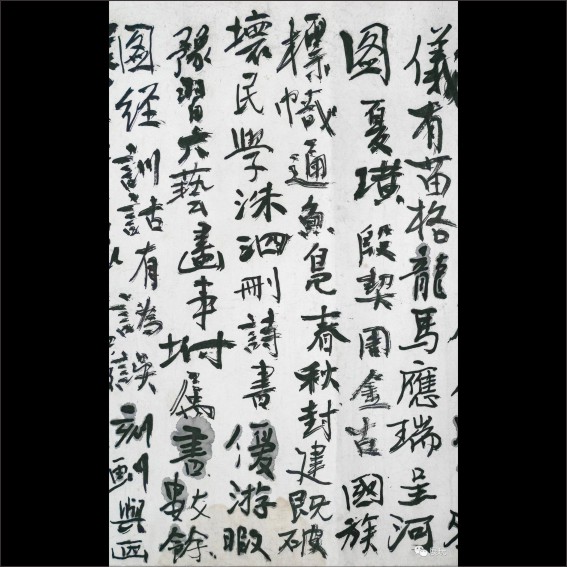 儀有苗格龍馬應瑞呈河
图夏璜殷契周金吉國族
標幟通魚凫春秋封建既破
壞民學洙泗刪詩書優游暇
豫習六藝畫事坿焉書數餘
圖经訓詁有為誤刻劃與画